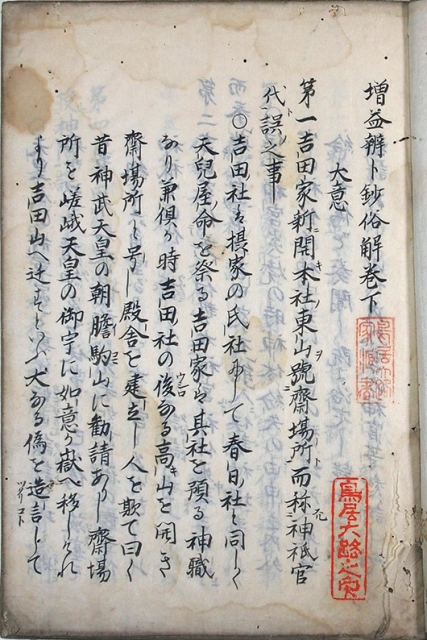 増益辨卜鈔俗解巻下
大意
第一吉田家新開末社東山號齋場所而称神祇官
代誤之事
○吉田社は摂家の氏社にして春日社と同しく
天兒屋命を祭る吉田家は其社を預る神職
なり兼倶か時吉田社の後なる高山を開き
齋場所と号し殿舎を建立し人を欺て曰く
昔神武天皇の朝膽駒山に勧請あり齋場
所を嵯峨天皇の御宇に如意か嶽へ移しそれ
より吉田山へ迁すといふ大なる偽を造言して
鳥居大路之宝